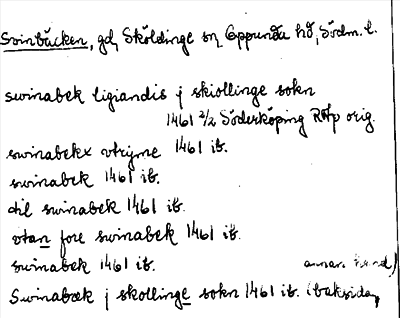 Svinbäcken, gd, Sköldinge sn, Oppunda hd, Södm. l.
swinabek ligiandis j skiollinge sokn
1461 2/2 Söderköping RAp orig.
swinabekx vtrijme 1461 ib.
swinabek 1461 ib.
til swinabek 1461 ib.
vtan fore swinabek 1461 ib.
swinabek 1461 ib.
Swinabæk j skollinge sokn 1461 ib. (baksidan, annan hand)